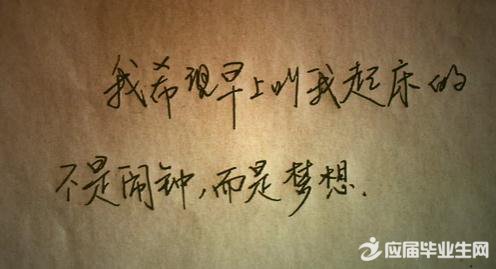 我希望早上叫我起床的
不是闹钟,而是梦想.
应届毕业生网